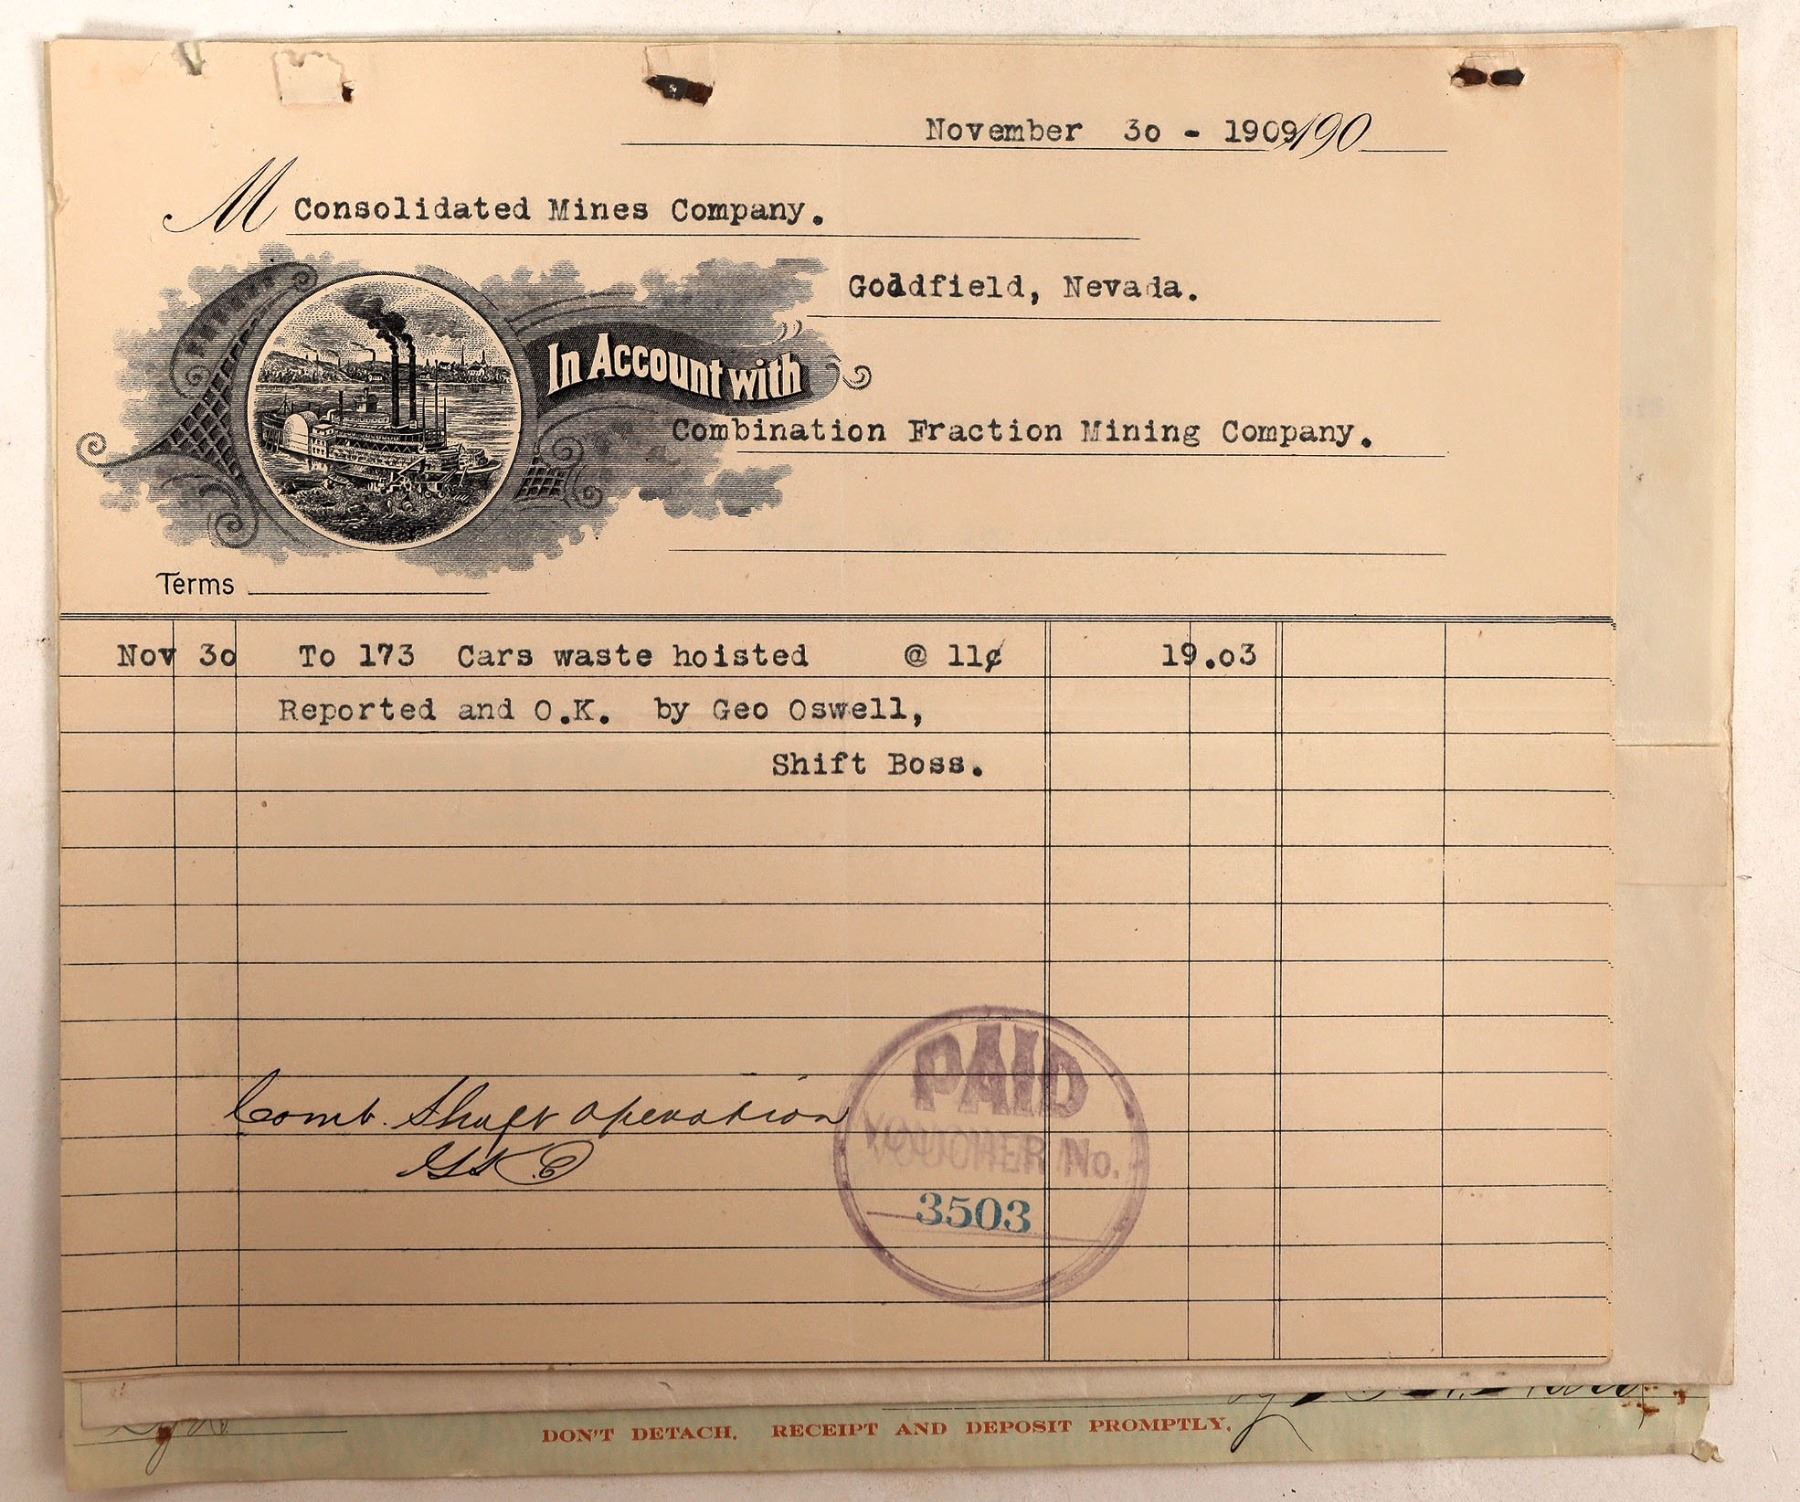 November 30 - 1909 190
M Consolidated Mines Company.
Goldfield, Nevada.
In Account with
Combination Fraction Mining Company.
Terms
Nov 30 To 173 Cars waste hoisted @ 11¢ 19.03
Reported and O.K. by Geo Oswell,
Shift Boss.
Comb. Shaft Operation
PAID
VOUCHER No.
3503
DON'T DETACH. RECEIPT AND DEPOSIT PROMPTLY.